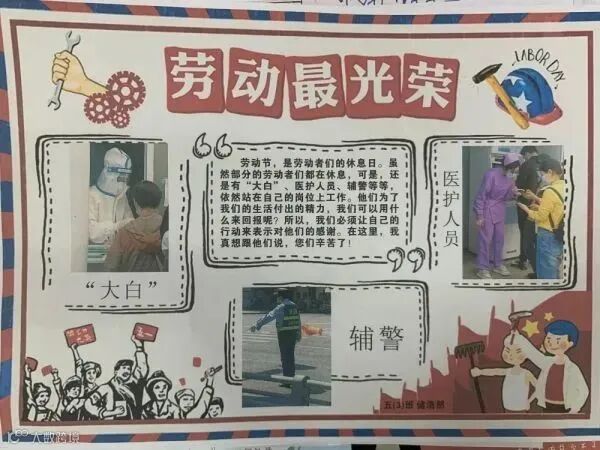 劳动最光荣
LABOR DAY
劳动节，是劳动者们的休息日。虽
然部分的劳动者们都在休息，可是，还
是有“大白”、医护人员、辅警等等，
依然站在自己的岗位上工作。他们为了
我们的生活付出的精力，我们可以用什
么来回报呢？所以，我们必须让自己的
行动来表示对他们的感谢。在这里，我
真想跟他们说，您们辛苦了！
医护人员
“大白”
辅警
五一
五(3)班
大数跨境